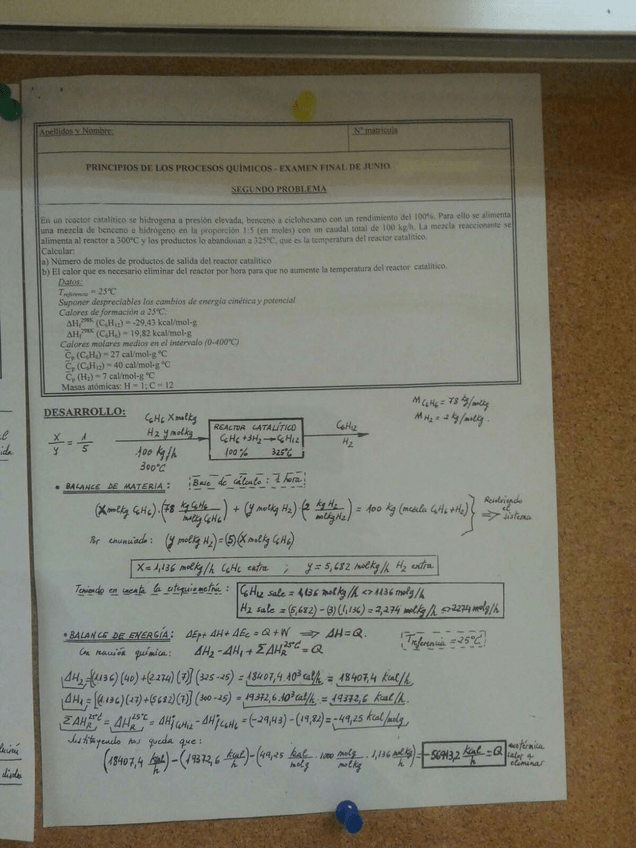 Apellidos y Nombre:
Nº matrícula
PRINCIPIOS DE LOS PROCESOS QUÍMICOS - EXAMEN FINAL DE JUNIO.
SEGUNDO PROBLEMA
En un reactor catalítico se hidrogena a presión elevada, benceno a ciclohexano con un rendimiento del 100%. Para ello se alimenta
una mezcla de benceno e hidrogeno en la proporción 1:5 (en moles) con un caudal total de 100 kg/h. La mezcla reaccionante se
alimenta al reactor a 300ºC y los productos lo abandonan a 325ºC, que es la temperatura del reactor catalítico.
Calcular:
a) Número de moles de productos de salida del reactor catalítico
b) El calor que es necesario eliminar del reactor por hora para que no aumente la temperatura del reactor catalítico.
Datos:
Treferencia = 25ºC
Suponer despreciables los cambios de energía cinética y potencial
Calores de formación a 25ºC:
ΔHf298K (C6H12) = -29,43 kcal/mol-g
ΔHf298K (C6H6) = 19,82 kcal/mol-g
Calores molares medios en el intervalo (0-400ºC)
Cp (C6H6) = 27 cal/mol-g ºC
Cp (C6H12) = 40 cal/mol-g ºC
Cp (H2) = 7 cal/mol-g ºC
Masas atómicas: H = 1; C = 12
DESARROLLO:
M C6H6 = 78 kg/molkg
M H2 = 2 kg/molkg.
x/y = 1/5
C6H6 X molkg
H2 y molkg
100 kg/h
300ºC
REACTOR CATALÍTICO
C6H6 + 3H2 → C6H12
100% 325ºC
C6H12
H2
• BALANCE DE MATERIA: Base de cálculo: 1 hora
(X molkg C6H6)·(78 kg C6H6/molkg C6H6) + (y molkg H2)·(2 kg H2/molkg H2) = 100 kg (mezcla C6H6+H2) } Resolviendo el sistema
Por enunciado: (y molkg H2) = (5)(X molkg C6H6)
X = 1,136 molkg/h C6H6 entra ; y = 5,682 molkg/h H2 entra
Teniendo en cuenta la estequiometría: C6H12 sale = 1,136 molkg/h <> 1136 molg/h
H2 sale = (5,682) - (3)(1,136) = 2,274 molkg/h <> 2274 molg/h
• BALANCE DE ENERGÍA: ΔEp + ΔH + ΔEc = Q + W ⟹ ΔH = Q. Treferencia = 25ºC
Con reacción química: ΔH2 - ΔH1 + ΣΔHR25ºC = Q
ΔH2 = [(1136)(40) + (2274)(7)](325-25) = 18407,4·10³ cal/h = 18407,4 Kcal/h.
ΔH1 = [(1136)(27) + (5682)(7)](300-25) = 19372,6·10³ cal/h = 19372,6 Kcal/h.
ΣΔHR25ºC = ΔHR25ºC = ΔHºf C6H12 - ΔHºf C6H6 = (-29,43) - (19,82) = -49,25 Kcal/molg
Sustituyendo nos queda que:
(18407,4 Kcal/h) - (19372,6 Kcal/h) - (49,25 Kcal/molg · 1000 molg/molkg · 1,136 molkg/h) = -56913,2 Kcal/h = Q exotérmica calor a eliminar